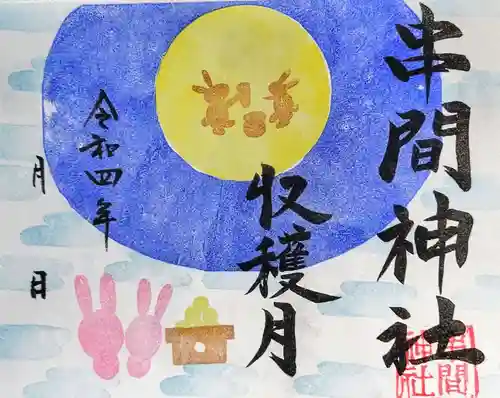 串間神社
収穫月
令和四年
月
日
串間
神社